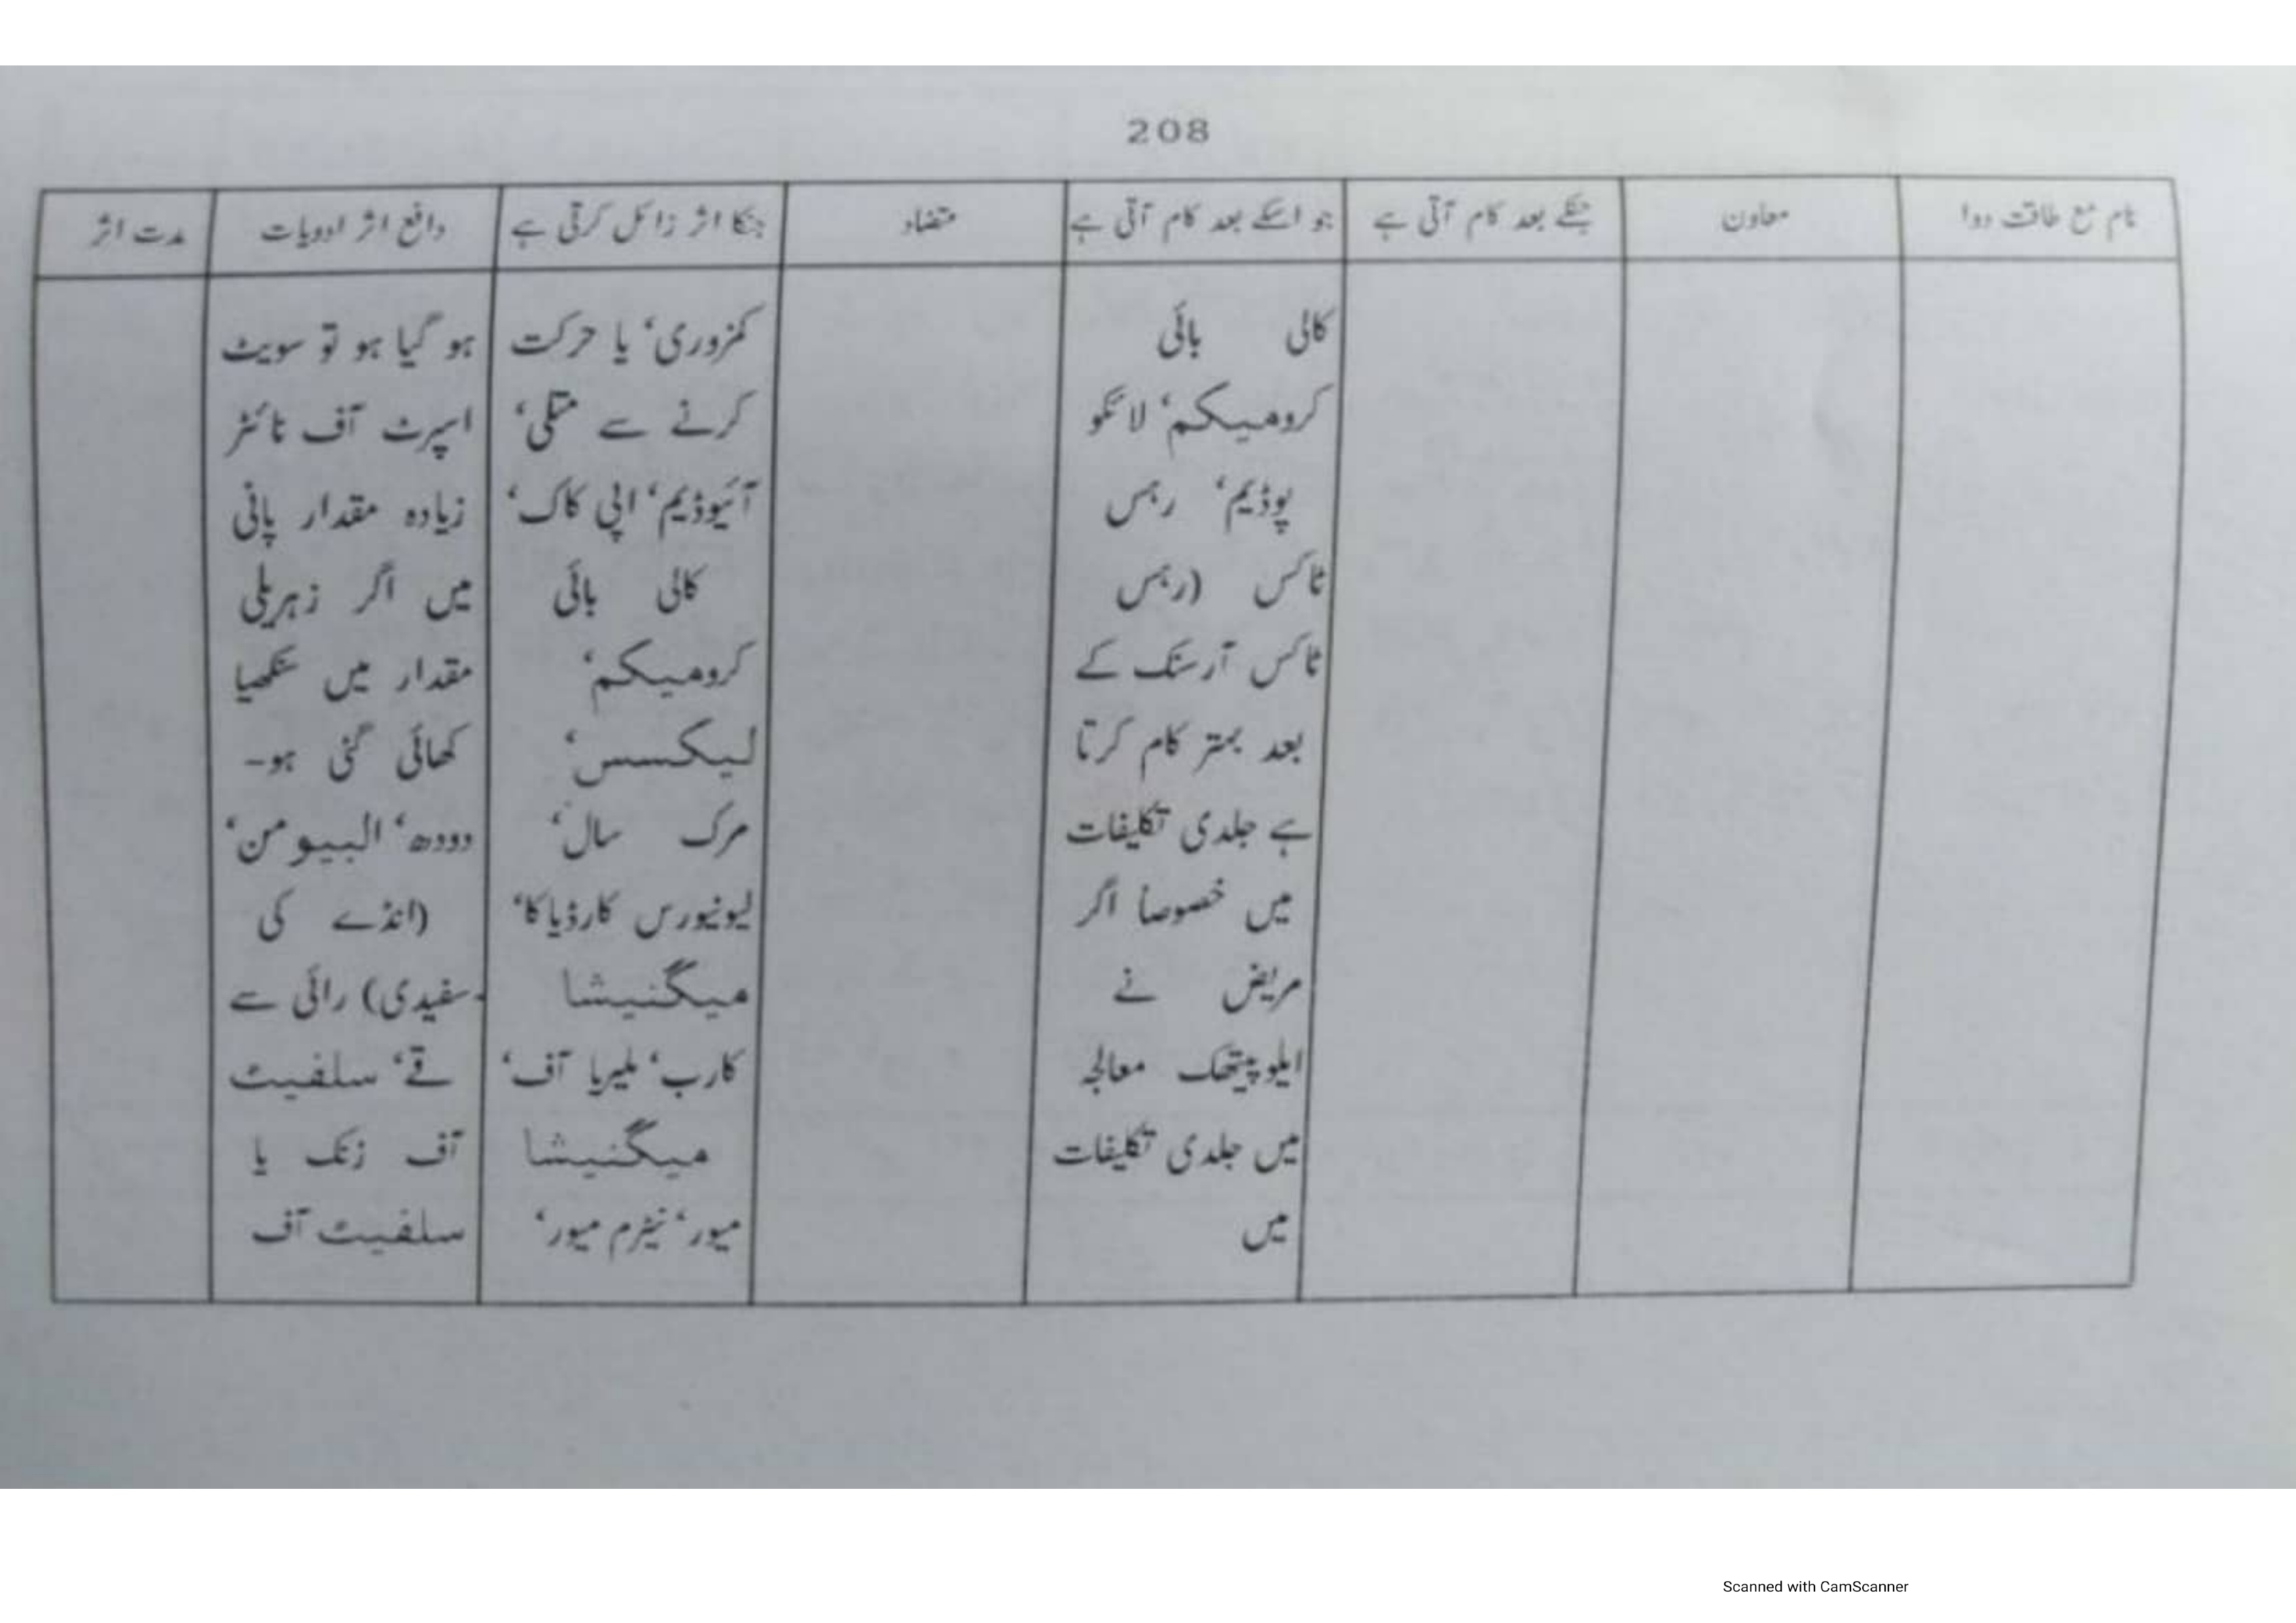 208
نام مع طاقت دوا
معاون
جنکے بعد کام آتی ہے
جو اسکے بعد کام آتی ہے
متضاد
جنکا اثر زائل کرتی ہے
دافع اثر ادویات
مدت اثر
کالی بائی
کرومیکم، لائکو
پوڈیم، رہس
ٹاکس (رہس
ٹاکس آرسنک کے
بعد بہتر کام کرتا
ہے جلدی تکلیفات
میں خصوصاً اگر
مریض نے
ایلوپیتھک معالجہ
میں جلدی تکلیفات
میں
کمزوری، یا حرکت
کرنے سے متلی،
آئیوڈیم، اپی کاک،
کالی بائی
کرومیکم،
لیکسس،
مرک سال،
لیونیورس کارڈیاکا،
میگنیشا
کارب، ملیریا آف،
میگنیشا
میور، نیٹرم میور،
ہو گیا ہو تو سویٹ
اسپرٹ آف نائٹر
زیادہ مقدار پانی
میں اگر زہریلی
مقدار میں سنکھیا
کھائی گئی ہو۔
دودھ، البیومن،
(انڈے کی
سفیدی) رائی سے
قے، سلفیٹ
آف زنک یا
سلفیٹ آف
Scanned with CamScanner